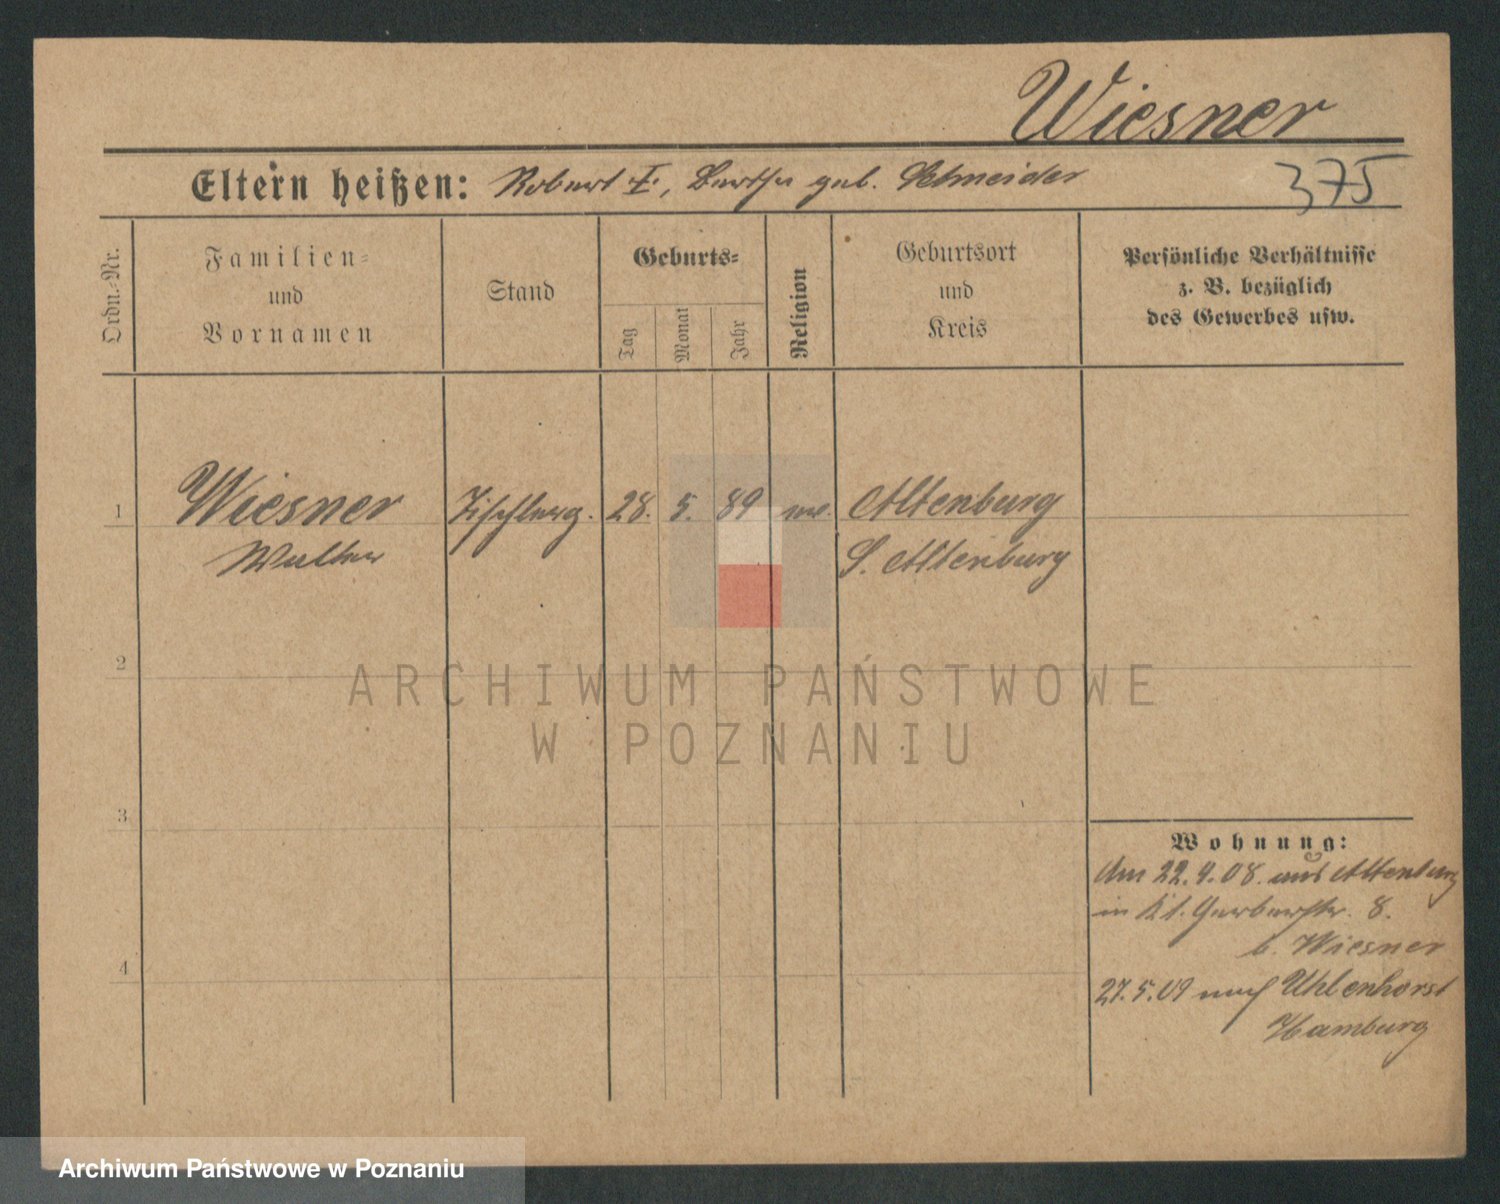 Wiesner
Eltern heißen: Robert †, Bertha geb. Schneider
375
Ordn.-Nr.
Familien-
und
Vornamen
Stand
Geburts-
Tag
Monat
Jahr
Religion
Geburtsort
und
Kreis
Persönliche Verhältnisse
z. B. bezüglich
des Gewerbes usw.
1 Wiesner Tischlerg. 28. 5. 89 Altenburg
Walter S. Altenburg
2
3
4
Wohnung:
Am 22.4.08. aus Altenburg
in Kl. Gerberstr. 8.
b. Wiesner
27.5.09 nach Uhlenhorst
Hamburg
ARCHIWUM PAŃSTWOWE
W POZNANIU
Archiwum Państwowe w Poznaniu